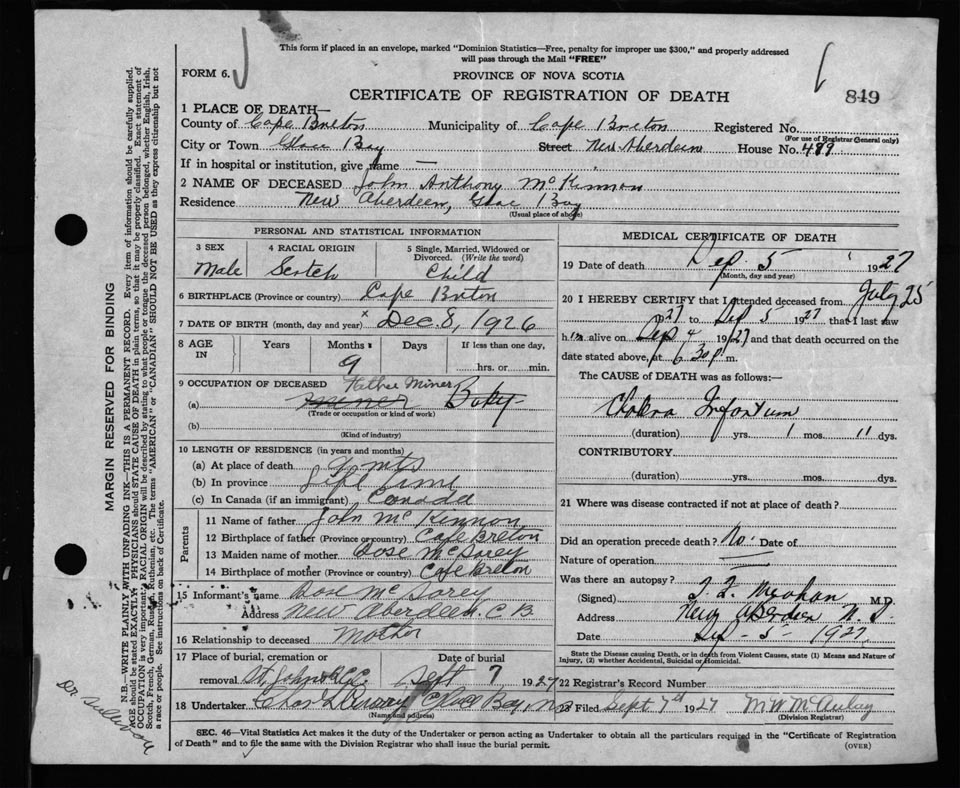 This form if placed in an envelope, marked "Dominion Statistics—Free, penalty for improper use $300," and properly addressed
will pass through the Mail "FREE"
FORM 6.
PROVINCE OF NOVA SCOTIA
CERTIFICATE OF REGISTRATION OF DEATH
849
1 PLACE OF DEATH—
County of Cape Breton Municipality of Cape Breton Registered No.
(For use of Registrar General only)
City or Town Glace Bay Street New Aberdeen House No. 489
If in hospital or institution, give name —
2 NAME OF DECEASED John Anthony McKinnon
Residence New Aberdeen, Glace Bay
(Usual place of abode)
PERSONAL AND STATISTICAL INFORMATION
3 SEX 4 RACIAL ORIGIN 5 Single, Married, Widowed or
Divorced. (Write the word)
Male Scotch Child
6 BIRTHPLACE (Province or country) Cape Breton
7 DATE OF BIRTH (month, day and year) x Dec. 8, 1926
8 AGE IN Years Months Days If less than one day,
9 hrs. or min.
9 OCCUPATION OF DECEASED Father Miner
(a) Miner Baby
(Trade or occupation or kind of work)
(b)
(Kind of industry)
10 LENGTH OF RESIDENCE (in years and months)
(a) At place of death 9 mts
(b) In province Life time
(c) In Canada (if an immigrant) Canada
Parents
11 Name of father John McKinnon
12 Birthplace of father (Province or country) Cape Breton
13 Maiden name of mother
14 Birthplace of mother (Province or country) Cape Breton
15 Informant's name
Address New Aberdeen C B
16 Relationship to deceased Mother
17 Place of burial, cremation or Date of burial
removal St. Johns Sept 7 1927
18 Undertaker Glace Bay, N.S.
(Name and address)
MEDICAL CERTIFICATE OF DEATH
19 Date of death Sep. 5 1927
(Month, day and year)
20 I HEREBY CERTIFY that I attended deceased from July 25
1927 to Sep 5 1927 that I last saw
him alive on Sep 4 1927 and that death occurred on the
date stated above, at 6.30 p m.
The CAUSE OF DEATH was as follows:
Cholera Infantum
(duration) yrs. 1 mos. 11 dys.
CONTRIBUTORY
(duration) yrs. mos. dys.
21 Where was disease contracted if not at place of death?
Did an operation precede death? No. Date of
Nature of operation —
Was there an autopsy? —
(Signed) M.D.
Address New Aberdeen N.S
Date Sep - 5 - 1927
State the Disease causing Death, or in death from Violent Causes, state (1) Means and Nature of
Injury, (2) whether Accidental, Suicidal or Homicidal.
22 Registrar's Record Number
23 Filed Sept 7th 1927 M W McAulay
(Division Registrar)
SEC. 46—Vital Statistics Act makes it the duty of the Undertaker or person acting as Undertaker to obtain all the particulars required in the "Certificate of Registration
of Death" and to file the same with the Division Registrar who shall issue the burial permit.
(OVER)
MARGIN RESERVED FOR BINDING
N.B.—WRITE PLAINLY WITH UNFADING INK—THIS IS A PERMANENT RECORD. Every item of information should be carefully supplied.
AGE should be stated EXACTLY. PHYSICIANS should STATE CAUSE OF DEATH in plain terms, so that it may be properly classified. Exact statement of
OCCUPATION is very important. RACIAL ORIGIN will be described by stating to what people or tongue the deceased person belonged, whether English, Irish,
Scotch, French, German, Russian, Ruthenian, etc. The terms "AMERICAN" or "CANADIAN" SHOULD NOT BE USED as they express citizenship but not
a race or people. See instructions on back of Certificate.